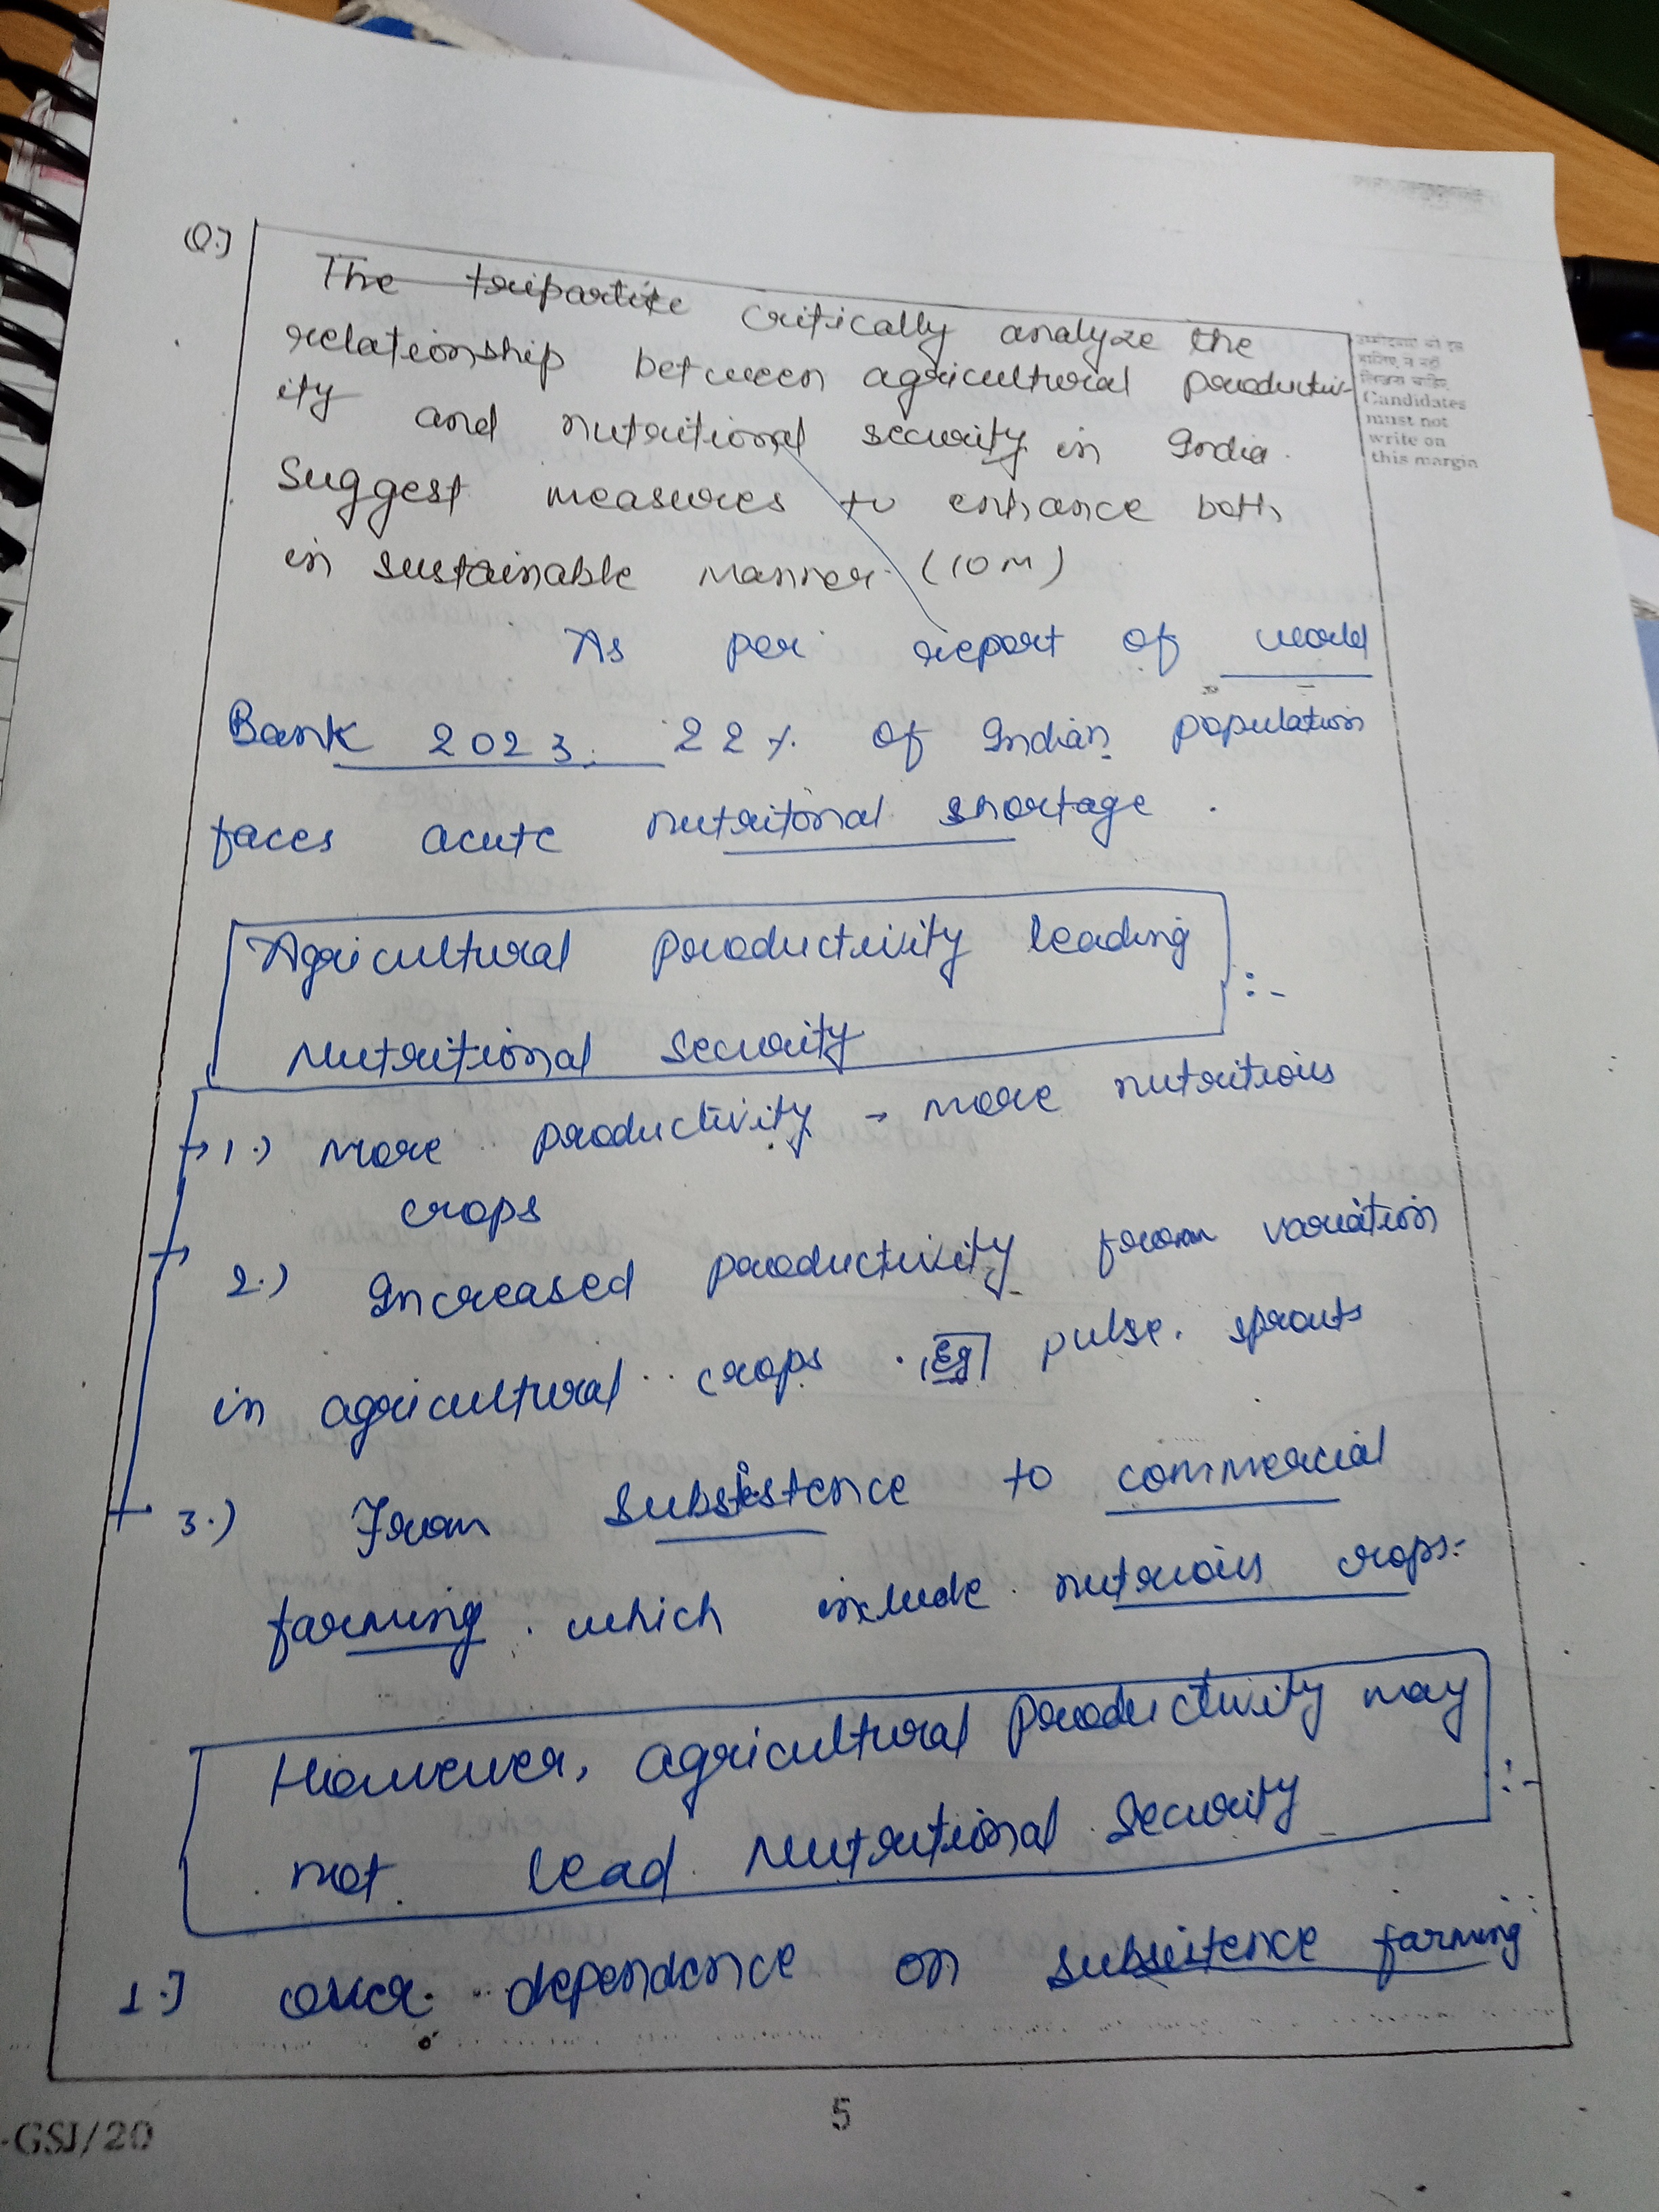 Q.)
The tripartite critically analyze the
relationship between agricultural productiv-
ity and nutritional security in India.
Suggest measures to enhance both
in sustainable manner. (10 M)
उम्मीदवारों को इस
हाशिए में नहीं
लिखना चाहिए
Candidates
must not
write on
this margin
As per report of world
Bank 2023. 22% of Indian population
faces acute nutritonal shortage.
Agricultural productivity leading
Nutritional security :-
1.) More productivity → more nutritious
crops
2.) Increased productivity from variation
in agricultural crops. Eg pulse. sprouts
3.) From subsistence to commercial
farming. which include nutrious crops.
However, agricultural productivity may
not lead Nutritional Security :-
1.) over dependence on subsistence farming
5
-GSI/20